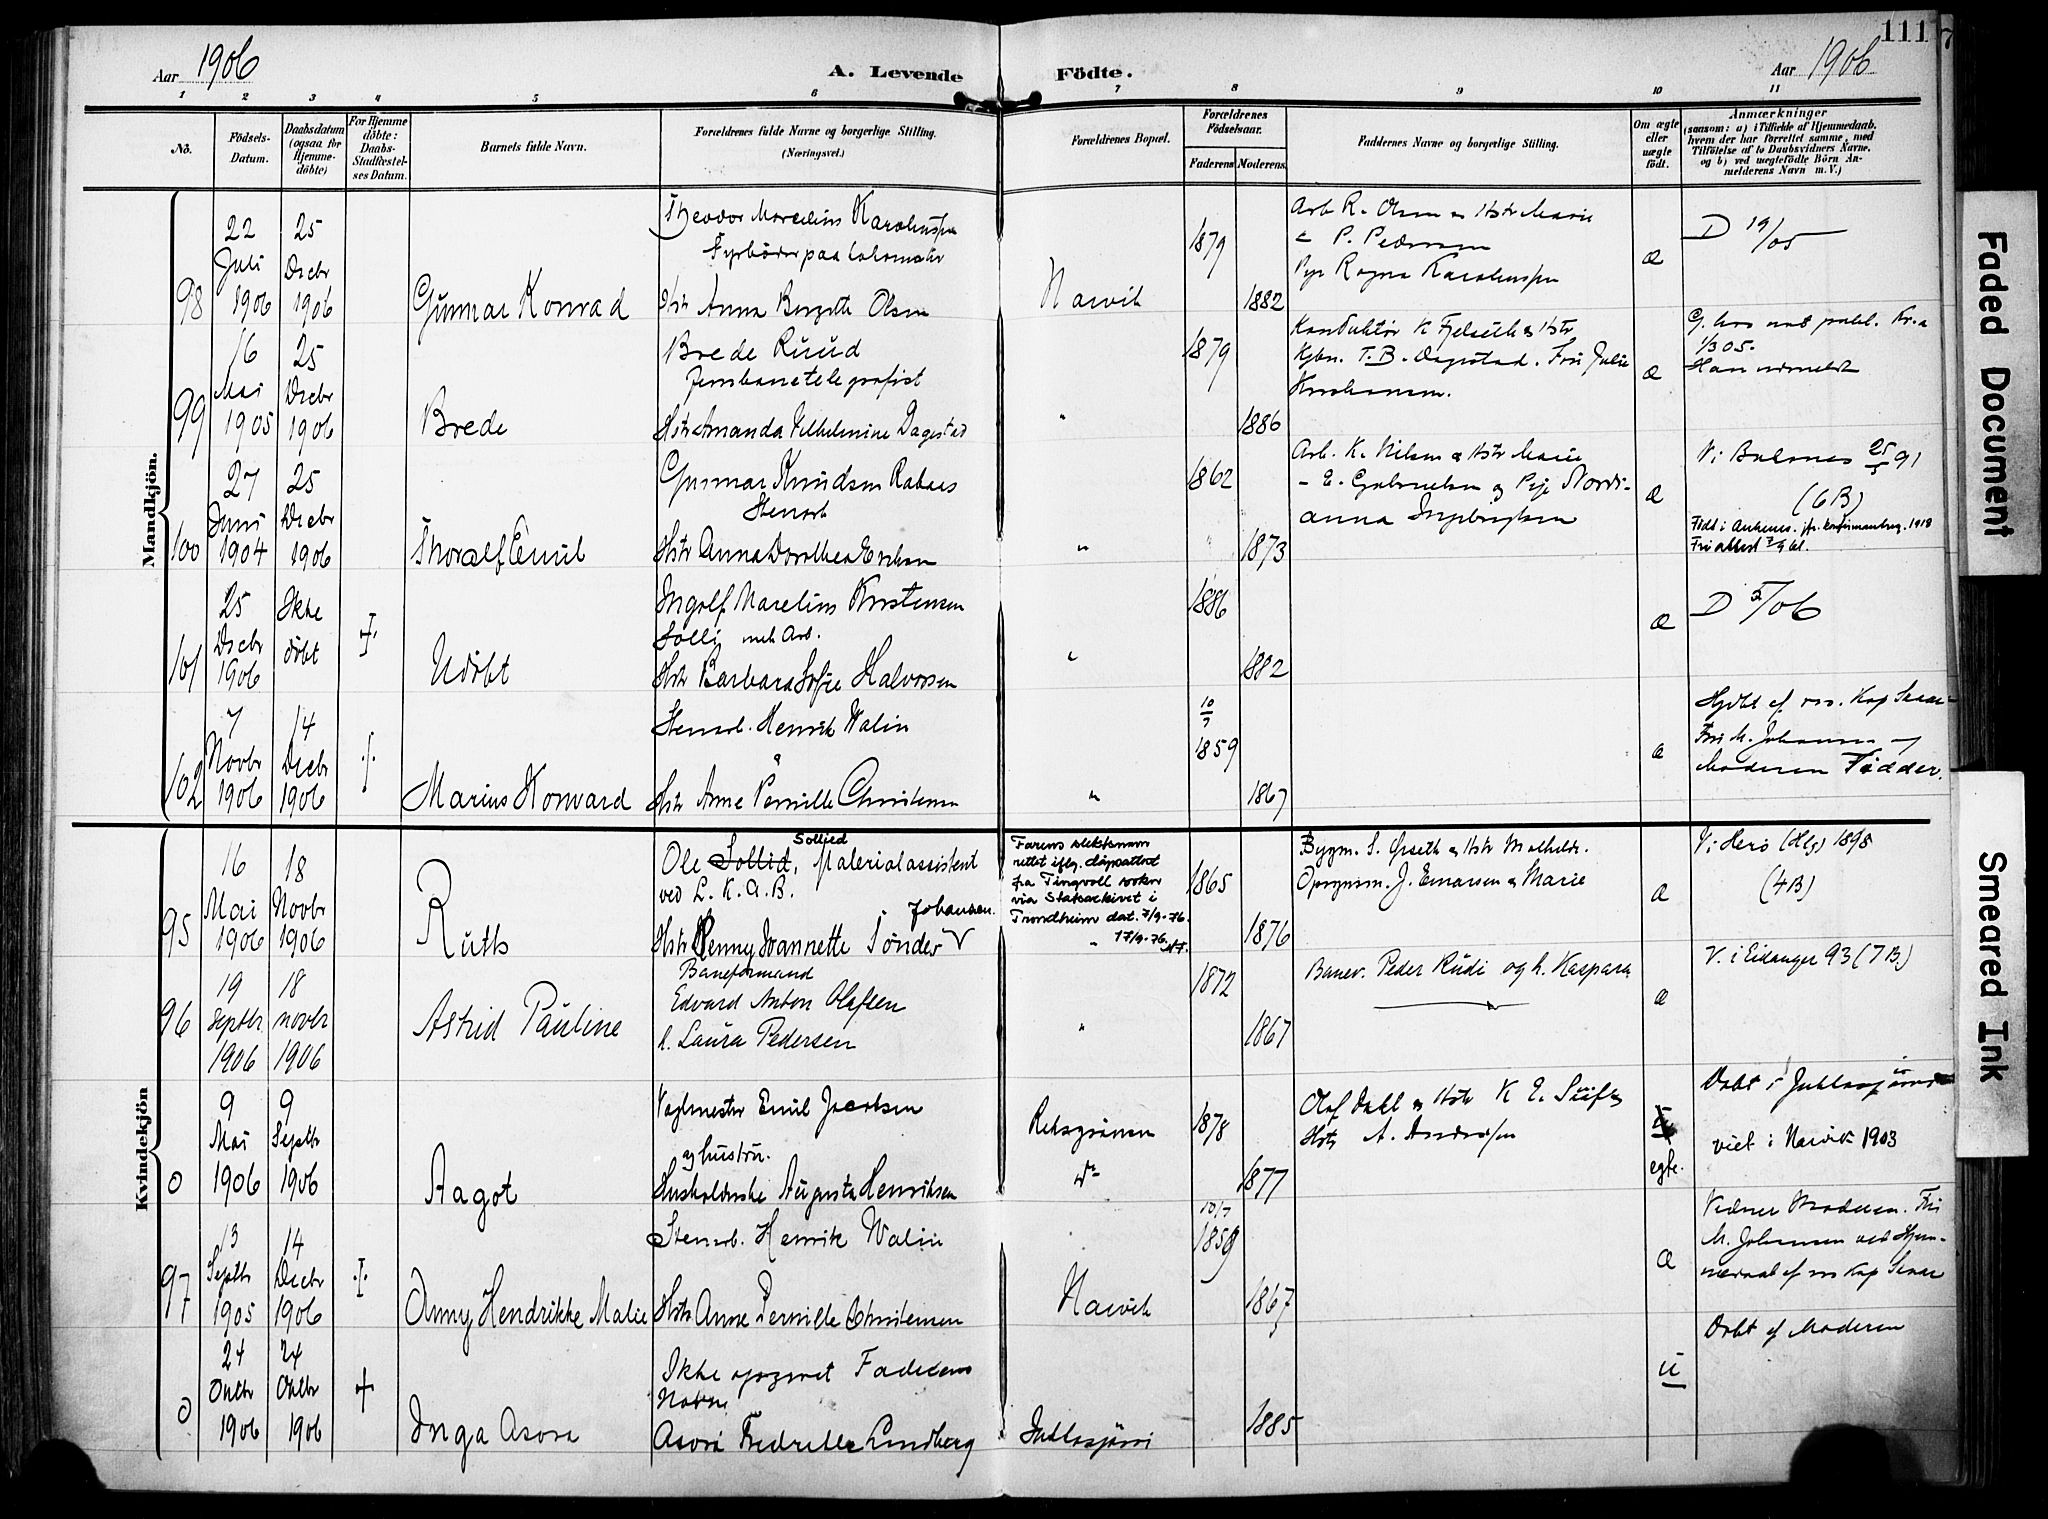 111
Aar 1906
A. Levende Födte.
Aar 1906
1 2 3 4 5 6 7 8 9 10 11
No.
Födsels-Datum.
Daabsdatum (ogsaa for Hjemme-döbte)
For Hjemme döbte: Daabs-Stadfæstelses Datum.
Barnets fulde Navn.
Forældrenes fulde Navne og borgerlige Stilling. (Næringsvei.)
Forældrenes Bopæl.
Forældrenes Födselsaar.
Faderens
Moderens
Faddernes Navne og borgerlige Stilling.
Om ægte eller uægte födt.
Anmærkninger
(saasom: a) i Tilfælde af Hjemmedaab.
hvem der har forrettet samme, med
Tilföielse af to Daabsvidners Navne,
og b) ved uegtefödte Börn Anmelderens Navn m. V.)
Mandkjön.
98
22 Juli 1906
25 Decbr 1906
Gunnar Konrad
Theodor Marelius Karolinssen
Fyrböder paa lokomotiv
Hstr Anna Bergitte Olsen
Narvik
1879
1882
Arb R. Olsen & Hstr Marie
P. Pedersen
Pige Ragna Karolinssen
æ
D 19/05
99
16 Mai 1905
25 Decbr 1906
Brede
Brede Ruud
Jernbanetelegrafist
Hstr Amanda Vilhelmine Dagestad
"
1879
1886
Konduktör K Fjelseth & Hstr
T. B. Dagestad. Frü Julie
æ
1/3 05.
Han udmeldt
100
27 Juni 1904
25 Decbr 1906
Thoralf Emil
Gunnar Knudsen Rabaas
Stenarb
Hstr Anna Dorothea Eriksen
"
1862
1873
Arb. K. Nilsen & Hstr Marie
- E. Gabrielsen og Pige Nordi-
anna Ingebrigtsen
æ
V i 25/5 91
(6B)
Födt i Ankenes. jfr. konfirmantreg. 1918
101
25 Decbr 1906
Ikke döbt
Udöbt
Ingolf Marelius Kristensen
Solli, Arb.
Hstr Barbara Sofie Halvorsen
"
1886
1882
æ
D 5/06
102
7 Novbr 1906
14 Decbr 1906
Marius Konvard
Stenarb. Henrik Walin
Hstr Anne Pernille Christensen
"
10/7 1859
1867
æ
Hjdbt af res. Kap Skaar-
Frü M. Johansen og
Moderen Fadder.
Kvindekjön
95
16 Mai 1906
18 Novbr 1906
Ruth
Sollied
Ole Sollid, Materialassistent
ved L. K. A. B.
Johansen.
Hstr Jenny Joannette Tönder V
Farens slektsnavn
rettet iflg. dåpsattest
fra Tingvoll sokn
via Statsarkivet i
Trondheim dat. 7/9-76.
" 17/9-76.
1865
1876
Bygm. S. Örseth & Hstr Mathilde.
J. Einarsen & Marie
æ
V i Herö (Hlg) 1898
(4B)
96
19 Septbr 1906
18 novbr 1906
Astrid Pauline
Baneformand
Edvard Anton Olafsen
h. Laura Pedersen
"
1872
1867
Banev. Peder Rudi og h. Kaspara
æ
V. i Eidanger 93 (7 B.)
0
9 Mai 1906
9 Septbr 1906
Aagot
Vagtmester Emil Jacobsen
og hustru.
Husholderske Augusta Henriksen
Riksgränsen
do
1878
1877
Olaf Dahl & Hstr K E.
Hstr A. Andersen
egte.
Döbt i Jukkasjärvi
viet i Narvik 1903
97
13 Septbr 1905
14 Decbr 1906
Anny Hendrikke Malie
Stenarb. Henrik Walin
Hstr Anne Pernille Christensen
Narvik
10/7 1859
1867
æ
Vidner Moderen. Frü
M. Johansen ved Hjem-
medaab af res Kap Skaar
0
24 Oktbr 1906
24 Oktbr 1906
Inga Asora
Ikke opgivet Faderens
Navn
Asora Fredrikke Lindberg
Jukkasjärvi
1885
u
Döbt af Moderen
Faded Document
Smeared Ink